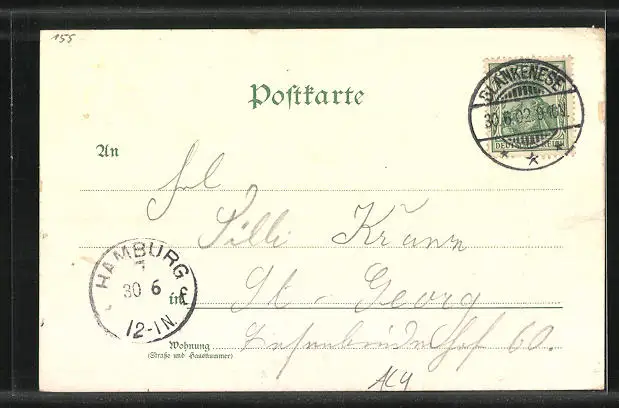 155
Postkarte
BLANKENESE
30.6.02.9-10N
DEUTSCHES REICH
An
Frl
Silli Krann
HAMBURG
1
30 6
12-1N.
in
St-Georg
Wohnung
(Straße und Hausnummer)
60.